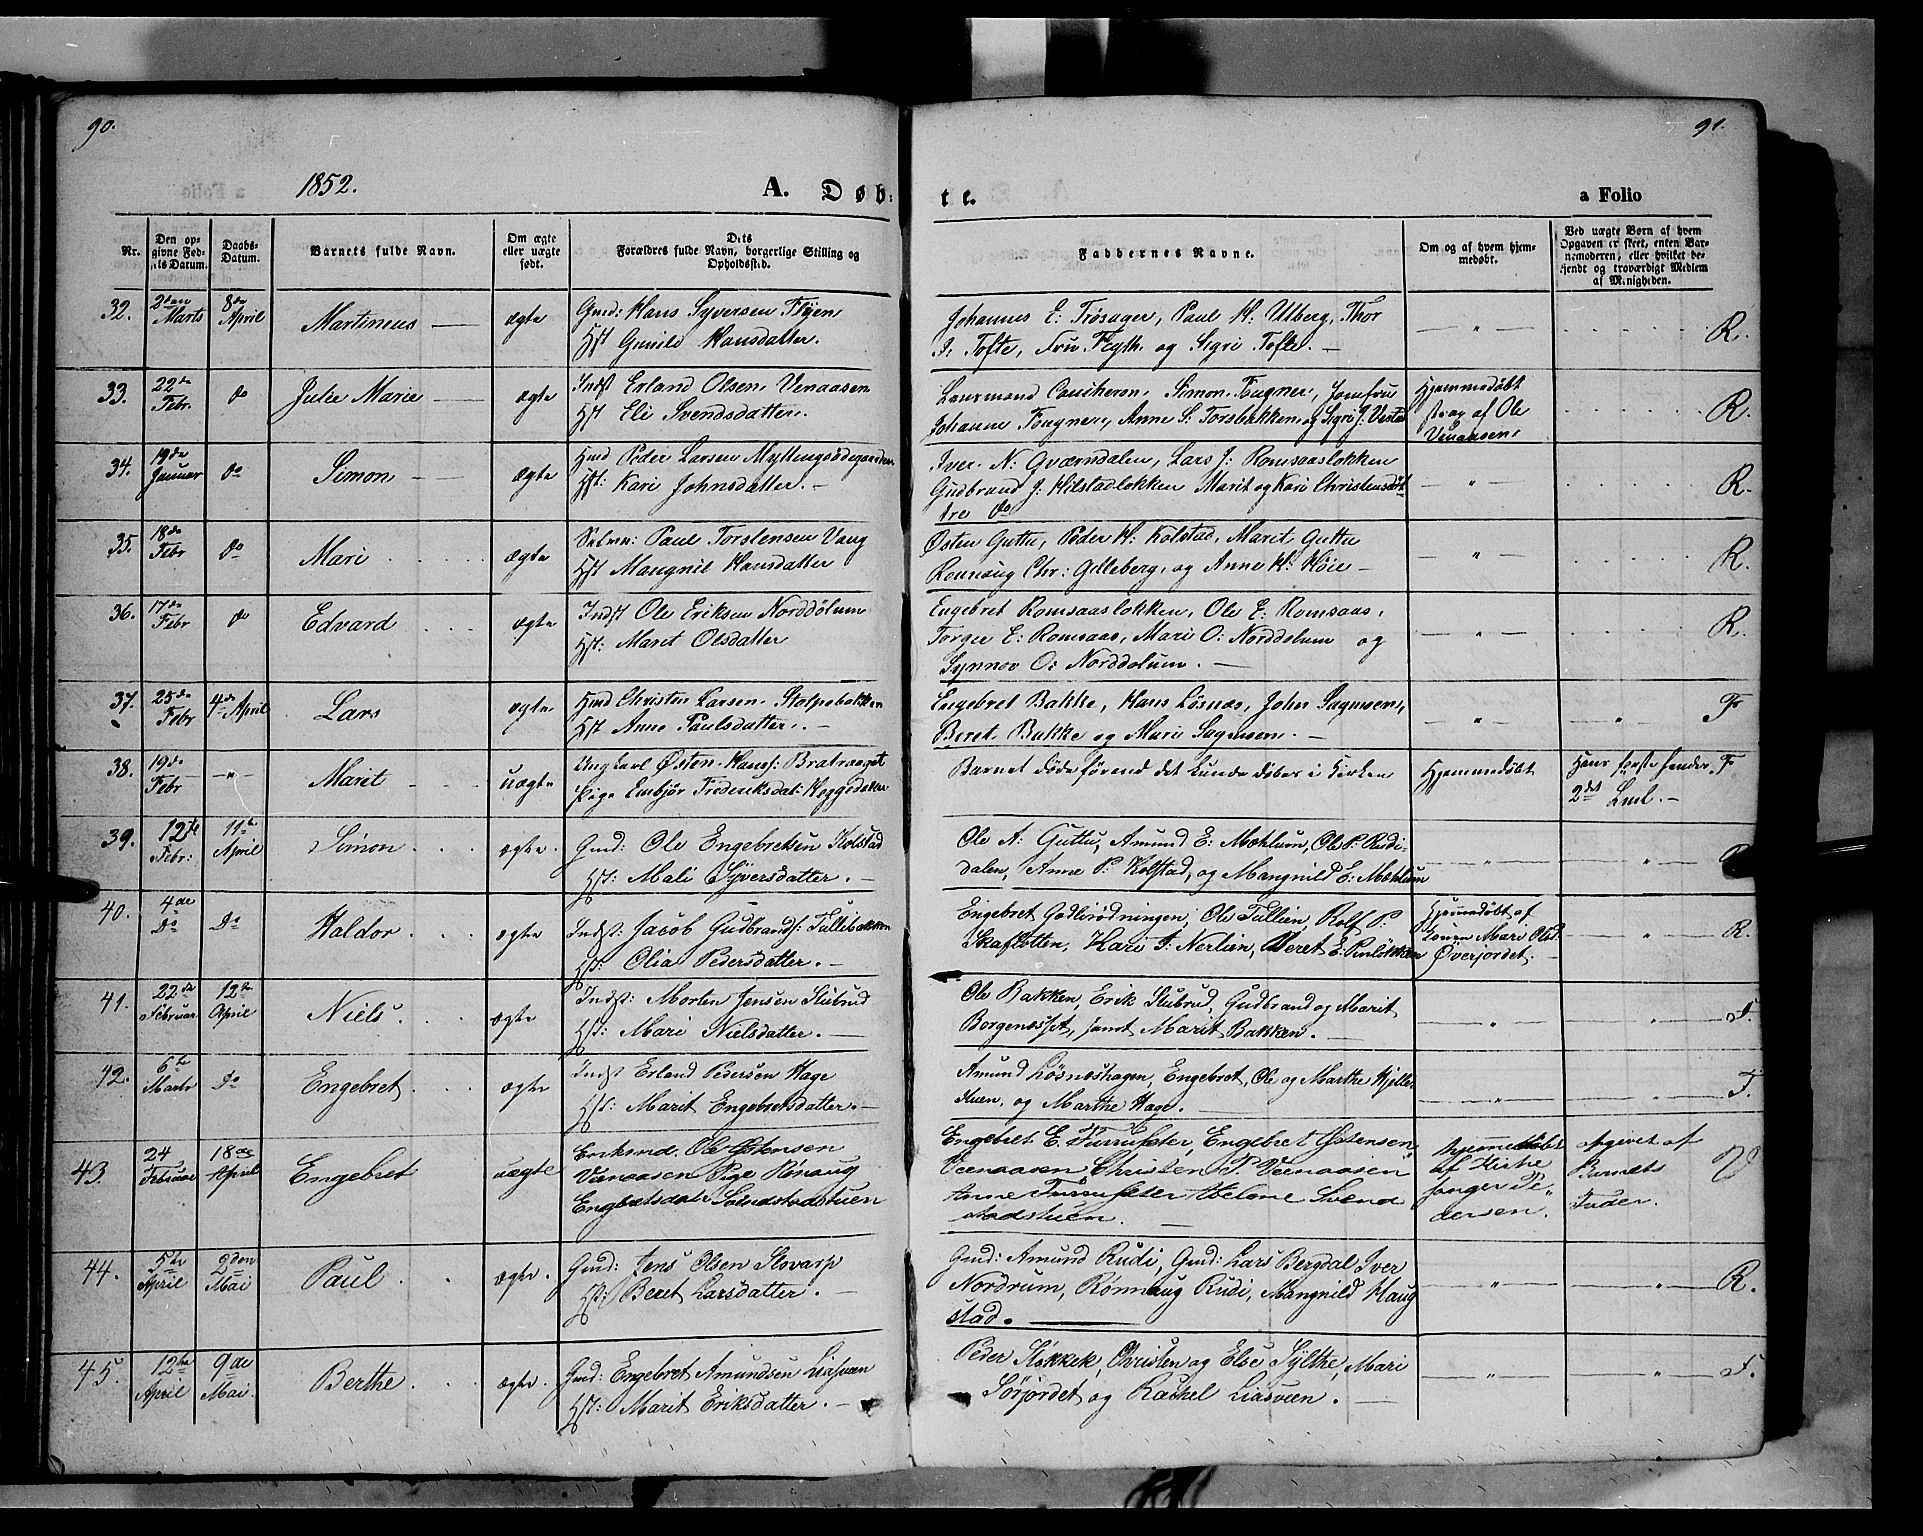 90.
91.
1852.
A. Døb-
te.
a Folio
Nr.
Den op-
givne Fød-
sels Datum.
Daabs-
Datum.
Barnets fulde Navn.
Om ægte
eller uægte
født.
Dets
Forældres fulde Navn, borgerlige Stilling og
Opholdssted.
Faddernes Navne.
Om og af hvem hjem-
medøbt.
Ved uægte Børn af hvem
Opgaven er skeet, enten Bar-
nemoderen, eller hvilket be-
kjendt og troværdigt Medlem
af Menigheden.
32.
2den
Marts
8de
April
Martineus
ægte
Gmd: Hans Syversen Flyen
Hst Gunild Hansdatter.
Johannes E: Frøsager, Paul H: Ulberg, Thor
I: Tofte, Fru Fegth. og Sigri Tofte.
R.
33.
22de
Febr.
do
Julie Marie
ægte
Indst Erland Olsen Venaasen
Hst Eli Svendsdatter.
Lensmand Simon Fougner, Jomfru
Johanne Fougner, Anne S. Torsbakken og Sigri J:
Hjemmedøbt
strax af Ole
Venaasen
R
34.
19de
Januar
do
Simon
ægte
Hmd Peder Larsen Myllingsødegaarden
Hst: Kari Johnsdatter.
Iver N: Gværndalen, Lars J: Romsaasløkken
Gudbrand J: Hilstadløkken Marit og Kari Christensdøt
tre do
R.
35.
18de
Febr
do
Mari
ægte
Paul Torstensen Vang
Hst Mangnil Hansdatter
Østen Guttu, Peder H: Kolstad, Marit Guttu
Rønnaug Chr: Gilleberg, og Anne H: Høie
R.
36.
17de
Febr
do
Edvard
ægte
Indst Ole Eriksen Norddølum
Hst: Marit Olsdatter
Engebret Romsaasløkken, Ole E: Romsaas,
Torger E: Romsaas, Mari O: Norddølum og
Synnøv O: Norddølum.
R.
37.
25de
Febr
4de April
Lars
ægte
Hmd Christen Larsen Stolpebakken
Hst Anne Paulsdatter.
Engebret Bakke, Hans Løsnæs, John Sagmoen,
Beret Bakke og Mari Sagmoen.
F
38.
19de
Febr
Marit
uægte
Ungkarl Østen Hans: Bratvaaget
Pige Embjør Frederiksdat: Heggedalen
Barnet døde førend det kunde døbes i Kirken
Hjemmedøbt
Hans første hendes
2det Leml.
F
39.
12te
Febr:
11te
April
Simon
ægte.
Gmd: Ole Engebretsen Kolstad
Hst: Mali Syversdatter.
Ole A: Guttu, Amund E: Mæhlum, Ole P: Rudi-
dalen, Anne P: Kolstad, og Mangnild E: Mæhlum
R
40.
4de
Do
Do
Haldor
ægte
Indst: Jacob Gudbrands: Tullibakken
Hst: Olia Pedersdatter.
Engebret Godlirødningen, Ole Tullien, Rolf P:
Skaflotten, Kari T: Nerlien, Beret E:
Hjemmedøbt af
Konen Mari Olsd:
Øverjordet.
R.
41.
22de
Februar
12te
April
Niels
ægte
Indst: Morten Jensen Stubrud
Hst: Mari Nielsdatter.
Ole Bakken, Erik Stubrud, Gudbrand og Marit
Borgenæsset, samt Marit Bakken.
F.
42.
6te
Marts
Do
Engebret
ægte
Indst Erland Pedersen Hage
Hst: Marit Engebretsdatter.
Amund Løsneshagen, Engebret, Ole og Marthe Kjelle
stuen, og Marthe Hage.
F.
43.
24
Februar
18de
April
Engebret
uægte
Enkemd. Ole Østensen
Venaasen Pige Rønaug
Engbetsdatr
Engebret E. Furruseter, Engebret Østensen
Veenaasen Christen P. Veenaasen
Anne Furruseter Abelone Svend
stadstuen.
hjemmedøbt
af Kirke
sanger Pe
dersen.
opgivet af
Barnets
Fader.
V
44.
5te
April
2den
Mai
Paul
ægte.
Gmd: Jens Olsen Slovarp
Hst: Beret Larsdatter.
Gmd: Amund Rudi, Gmd: Lars Bergdal Iver
Nordrum, Rønnaug Rudi, Mangnild Haug
stad.
R.
45.
12te
April
9de
Mai.
Berthe
ægte.
Gmd: Engebret Amundsen Liasveen
Hst: Marit Eriksdatter.
Peder Stokkek, Christen og Else Sylthe, Mari
Sørjordet og Rachel Liasveen.
F.